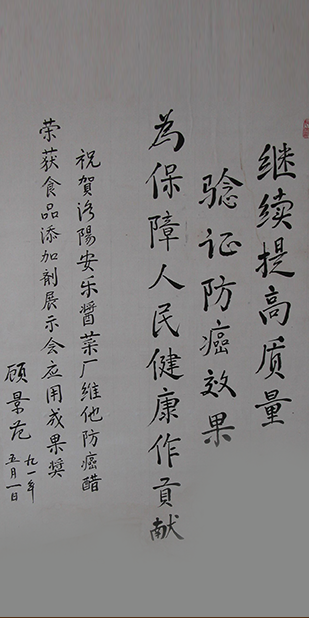 继续提高质量
验证防癌效果
為保障人民健康作贡献
祝賀洛陽安乐醬菜厂维他防癌醋
荣获食品添加剂展示会应用成果奖
顾景范
九一年
五月一日